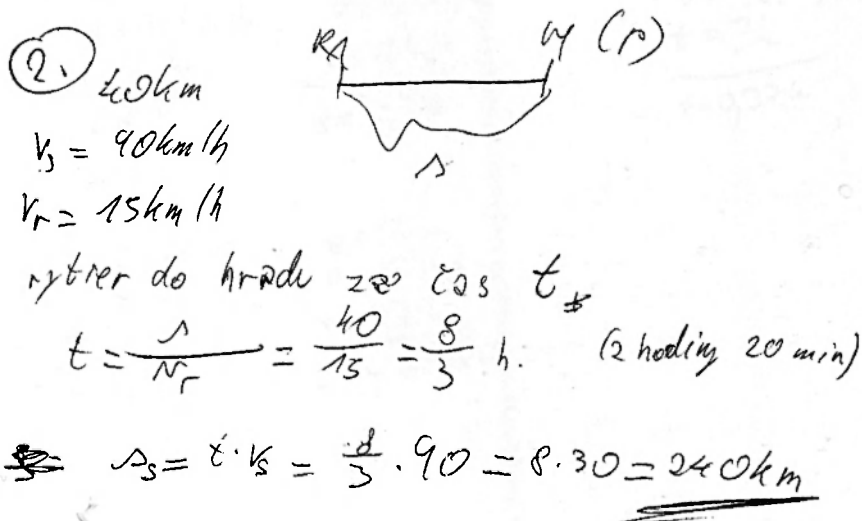 2.
40km
RA M (s)
s
v_s = 90km/h
v_r = 15km/h
rytier do hradu za čas t
t = s/v_r = 40/15 = 8/3 h. (2 hodiny 20 min)
s_s = t·v_s = 8/3 · 90 = 8·30 = 240km